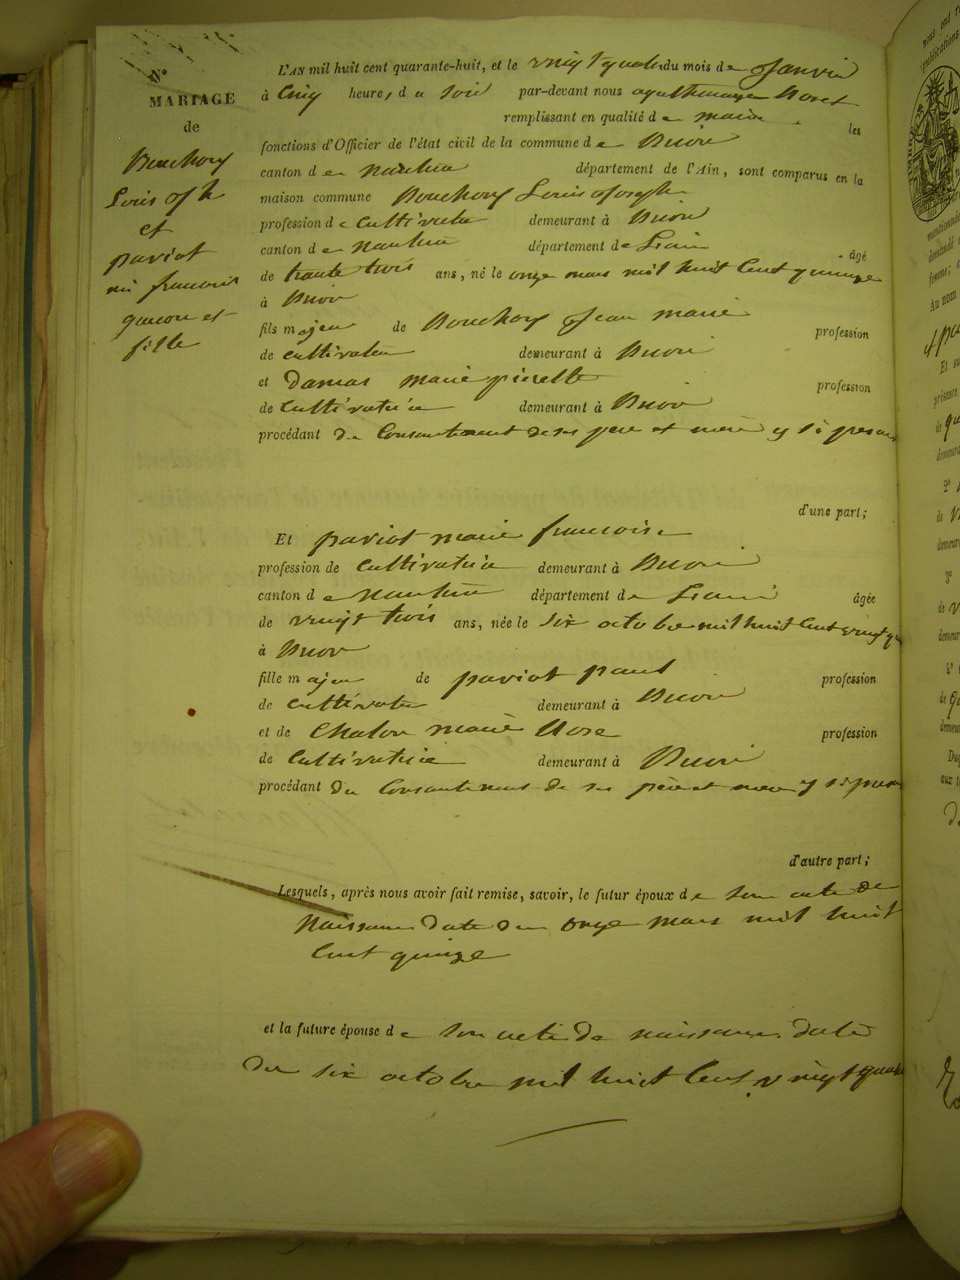 N°
MARIAGE
de
Bouchoux
Louis Jh
et
paviot
françois
garcon et
fille
L'AN mil huit cent quarante-huit, et le vingt quatre du mois de Janvie
à Cinq heures du soir par-devant nous
remplissant en qualité de maire les
fonctions d'Officier de l'état civil de la commune de
canton de nantua département de l'Ain, sont comparus en la
maison commune Bouchoux Louis Joseph
profession de cultivateu demeurant à
canton de nantua département de Lain âgé
de trante trois ans, né le onze mars mil huit Cent quinze
à
fils majeu de Bouchoux Jean marie profession
de cultivateu demeurant à
et Damas marie pierette profession
de cultivatrice demeurant à
procédant du Consantement de ses pere et mere y si presan
d'une part;
Et paviot marie francoise
profession de cultivatrice demeurant à
canton de nantua département de Lain âgée
de vingt trois ans, née le six octobre mil huit Cent vingt qu
à
fille majeu de paviot paul profession
de cultivateu demeurant à
et de Chalon marie Rose profession
de Cultivatrice demeurant à
procédant du Consantement de ses père et mere y si presan
d'autre part;
Lesquels, après nous avoir fait remise, savoir, le futur époux de son acte de
Naissance date du onze mars mil huit
Cent quinze
et la future épouse de son acte de naissance date
du six octobre mil huit Cent vingt quatre